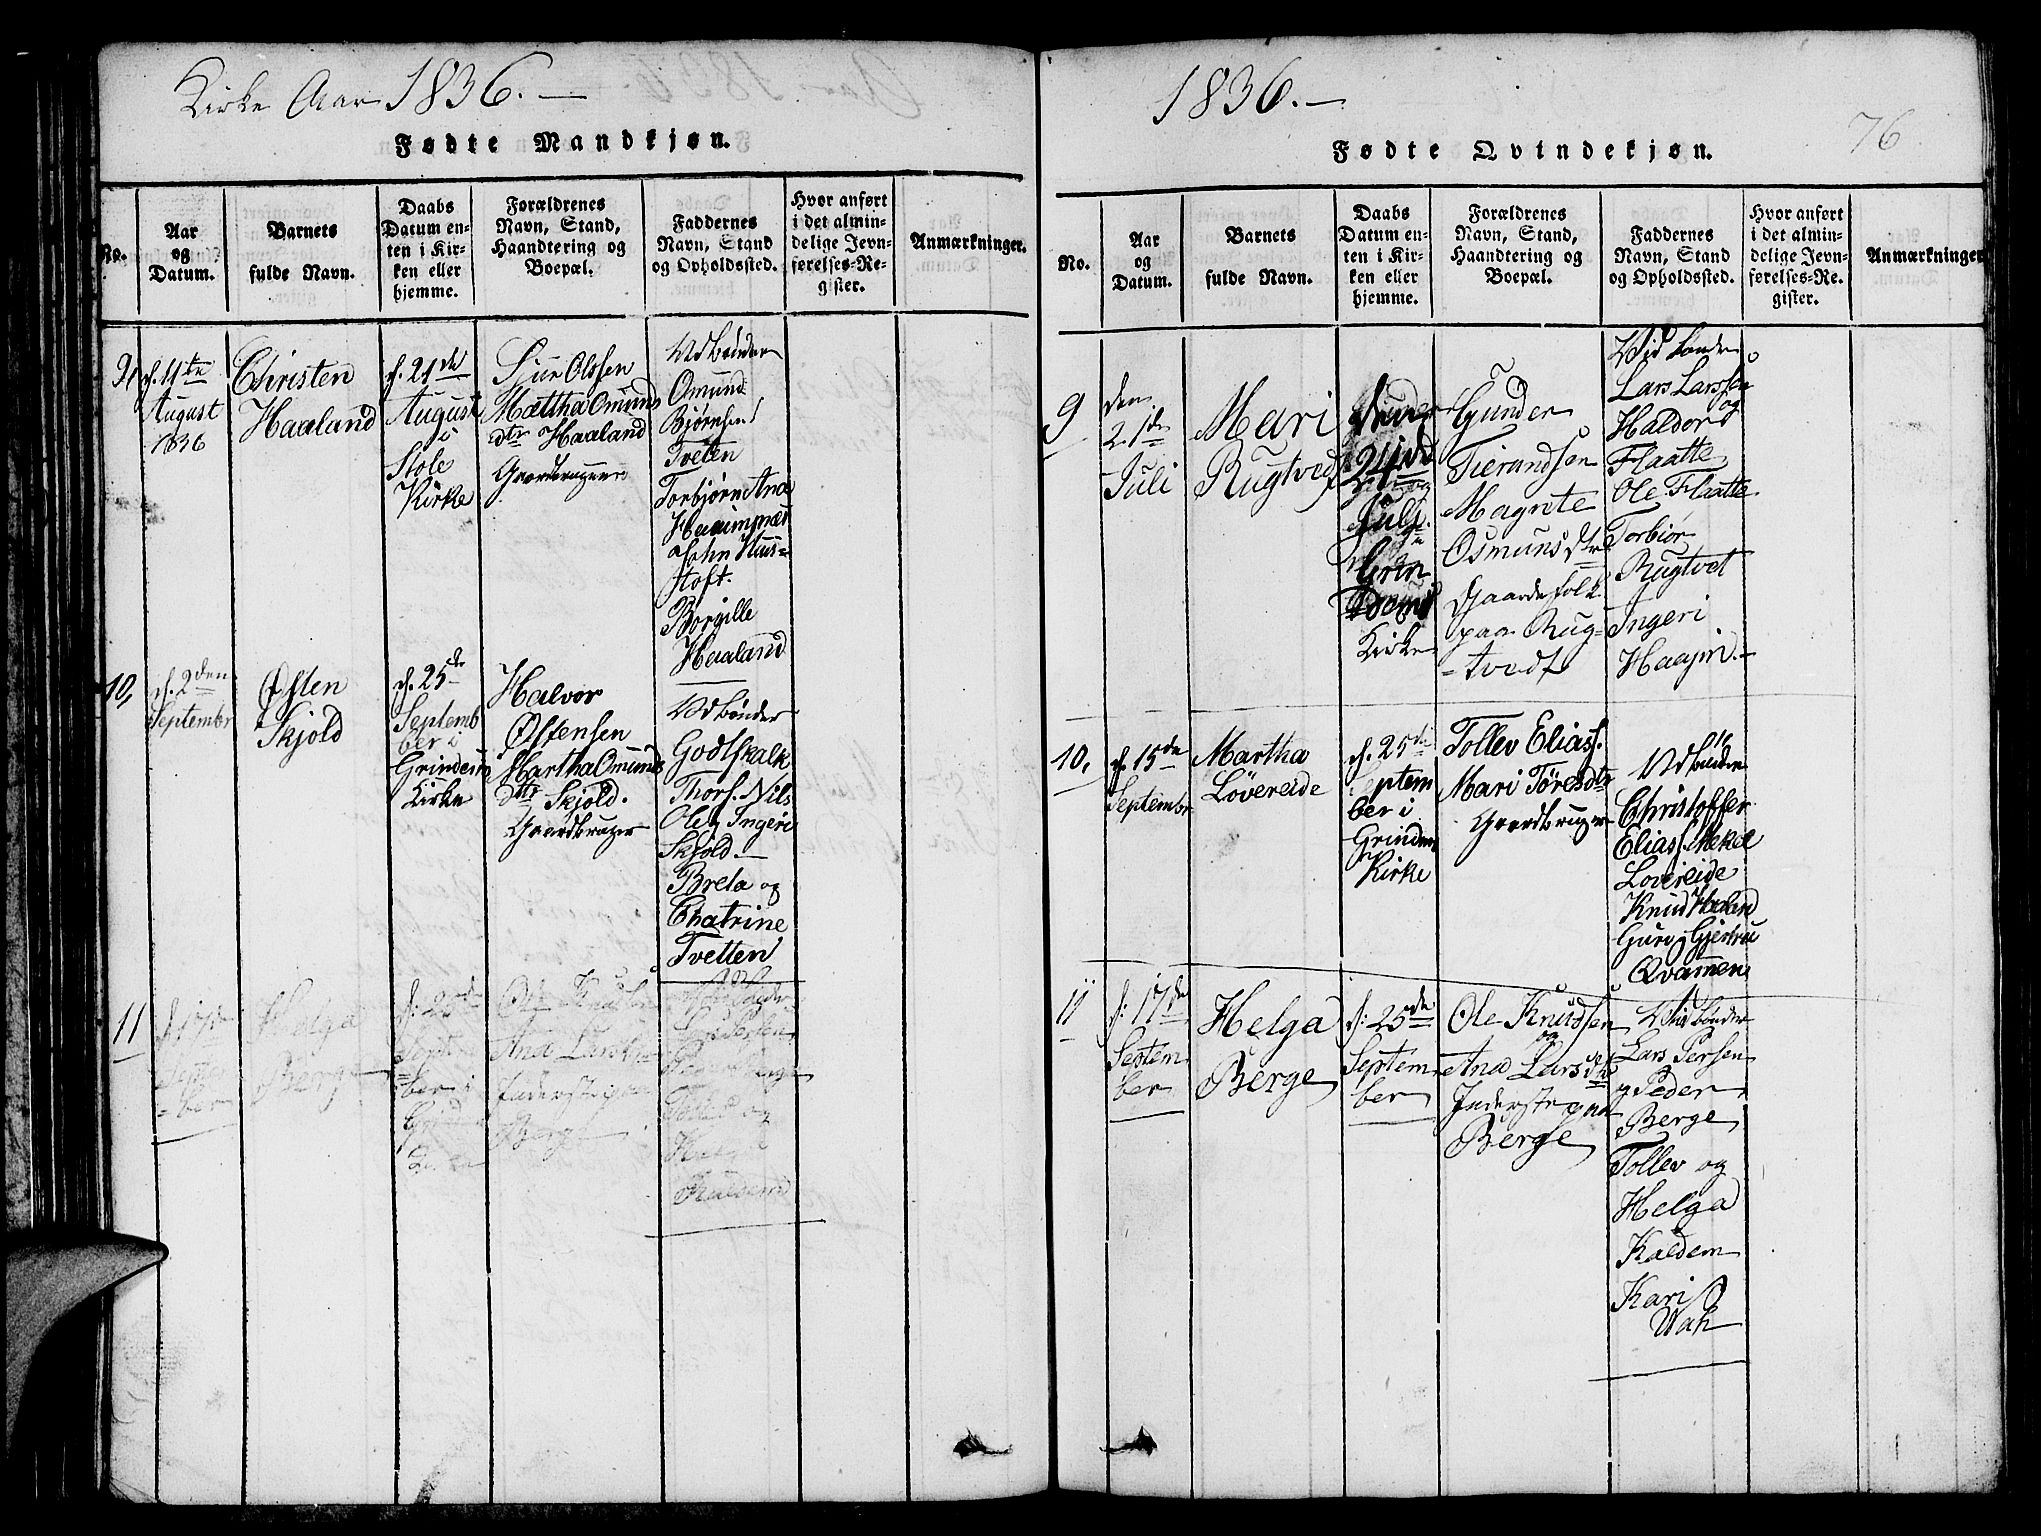 Kirke Aar 1836.
Fødte Mandkjøn.
No.
Aar
og
Datum.
Barnets
fulde Navn.
Daabs
Datum en-
ten i Kir-
ken eller
hjemme.
Forældrenes
Navn, Stand,
Haandtering og
Boepæl.
Faddernes
Navn, Stand
og Opholdssted.
Hvor anført
i det almin-
delige Jevn-
førelses-Re-
gister.
Anmærkninger.
9,
d. 11te
August
1836
Christen
Haaland
d. 21de
August
i
Stole
Kirke
Sjur Olssen
Mættha Omunds
dtr Haaland
Gaardbruger
Vidbönder
Omund
Bjørnsen
Tveten
Torbjørn Ana
Hauimnæs
John Hus-
toft.
Borgille
Haaland
10,
d. 2den
Septembr
Østen
Skjold
d. 25de
Septemb
ber i
Grindem
Kirke
Halvor
Østensen
Martha Omunds
dtr Skjold.
Gaardbruger
Vidbönder
Godtskalk
Thors. Nils
Ole, Ingeri
Skjold.
Breta og
Chatrine
Tvetten
11
d. 17de
Septem
-ber
Helga
Berge
d: 25de
Septem
ber i
Grind
Ole Knudsen
Ana Larsdtr
Inderste paa
Berge
Lars Persen
Peder Berge
Tollev og
Helga
Kaldem
1836.
76
Fødte Qvindekjøn.
No.
Aar
og
Datum.
Barnets
fulde Navn.
Daabs
Datum en-
ten i Kir-
ken eller
hjemme.
Forældrenes
Navn, Stand,
Haandtering og
Boepæl.
Faddernes
Navn, Stand
og Opholdssted.
Hvor anført
i det almin-
delige Jevn-
førelses-Re-
gister.
Anmærkninger
9
den
21de
Juli
Mari
Rugtvedt
den
24de
Juli
i
Grin
dems
Kirke
Gunder
Tierandsen
Magrete
Osmunsdtr
Gaardsfolk
paa Rug-
-tvedt
Vid bönder
Lars Larssen
og
Haldor
Flaatte
Ole Flaatte
Torbiør
Rugtvet
Ingeri
Haajm.
10,
d. 15de
Septembr
Martha
Lövereide
d. 25de
Septem
ber i
Grindem
Kirke
Tollev Eliass.
Mari Töresdtr
Gaardbruger
Vidbönder
Christoffer
Eliass. Mekel
Lovereide
Knud Haaland
Guro, Gjertru
Qvamen
11
d: 17de
Septem
ber
Helga
Berge
d: 25de
Septem
ber
Ole Knudsen
og
Ana Larsdtr
Inderste paa
Berge
Vid bönder
Lars Persen
og Peder
Berge
Tollev og
Helga
Kaldem
Kari
Wah